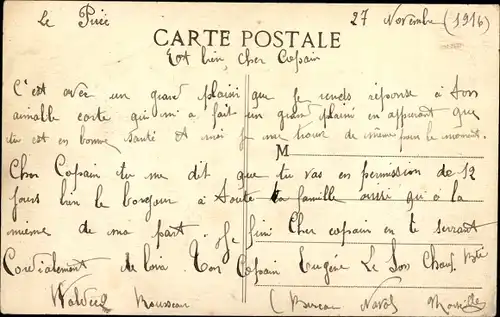 Le Pirée 27 Novembre (1916)
CARTE POSTALE
bien, cher Copain
C'est avec un grand plaisir que je rends réponse à ton
aimable carte qui m'a fait un grand plaisir en apprenant que
tu est en bonne santé et moi je me trouve de même pour le moment.
M
Cher Copain tu me dit que tu vas en permission de 12
jours bien le bonjour à toute ta famille ainsi qu'à la
mienne de ma part. Je fini Cher copain en te serrant
Cordialement de loin. Ton Copain Eugène Le
Waldeck Rousseau (Bureau Naval Marseille